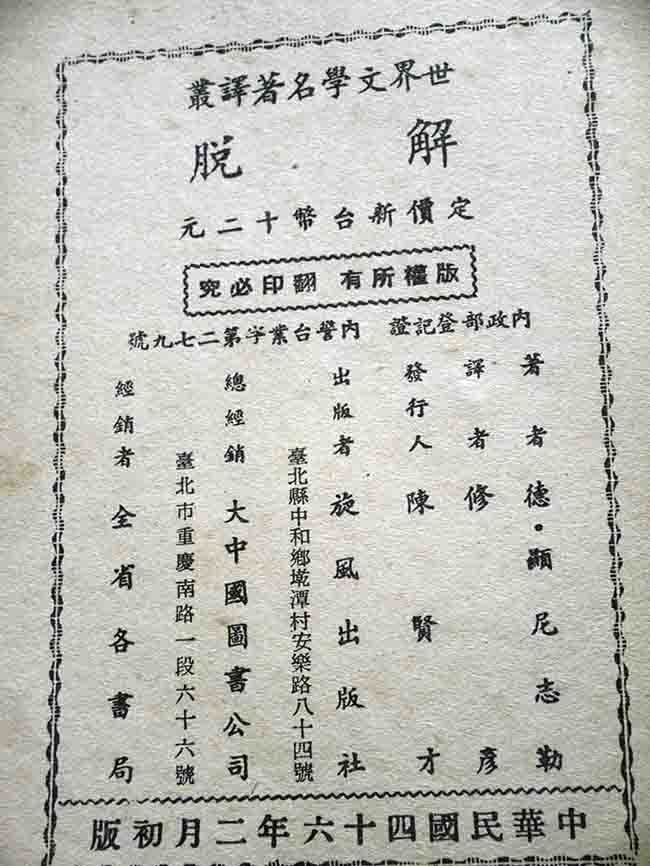 世界文學名著譯叢
解脫
定價新台幣十二元
版權所有 翻印必究
內政部登記證 內警台業字第二七九號
著者德・顯尼志勒
譯者修彥
發行人陳賢才
出版者旋風出版社
臺北縣中和鄉墘潭村安樂路八十四號
總經銷大中國圖書公司
臺北市重慶南路一段六十六號
經銷者全省各書局
中華民國四十六年二月初版